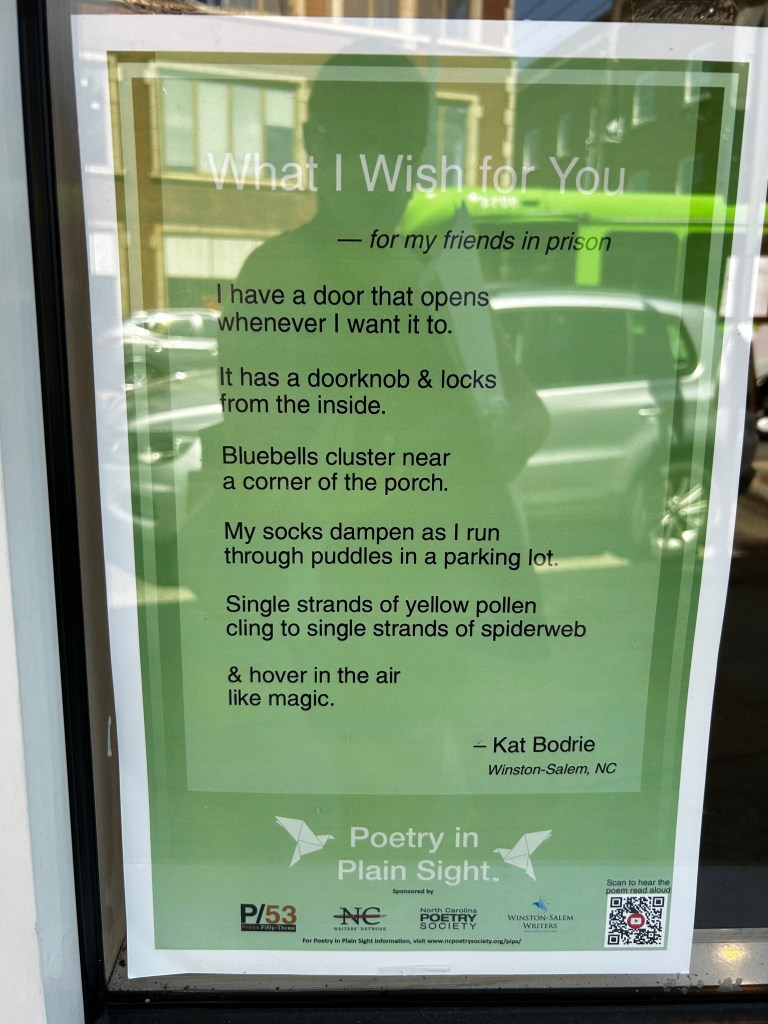 What I Wish for You
— for my friends in prison
I have a door that opens
whenever I want it to.
It has a doorknob & locks
from the inside.
Bluebells cluster near
a corner of the porch.
My socks dampen as I run
through puddles in a parking lot.
Single strands of yellow pollen
cling to single strands of spiderweb
& hover in the air
like magic.
– Kat Bodrie
Winston-Salem, NC
Poetry in
Plain Sight
Sponsored by
P/53
Press Fifty-Three
NC
WRITERS' NETWORK
North Carolina
POETRY
SOCIETY
WINSTON-SALEM
WRITERS
Scan to hear the
poem read aloud
For Poetry in Plain Sight information, visit www.ncpoetrysociety.org/pips/